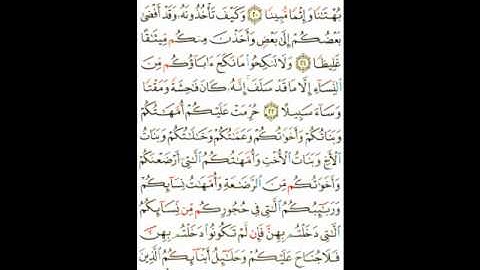 بُهْتَٰنًا وَإِثْمًا مُّبِينًا ٢٠ وَكَيْفَ تَأْخُذُونَهُۥ وَقَدْ أَفْضَىٰ
بَعْضُكُمْ إِلَىٰ بَعْضٍ وَأَخَذْنَ مِنكُم مِّيثَٰقًا
غَلِيظًا ٢١ وَلَا تَنكِحُوا۟ مَا نَكَحَ ءَابَآؤُكُم مِّنَ
ٱلنِّسَآءِ إِلَّا مَا قَدْ سَلَفَ ۚ إِنَّهُۥ كَانَ فَٰحِشَةً وَمَقْتًا
وَسَآءَ سَبِيلًا ٢٢ حُرِّمَتْ عَلَيْكُمْ أُمَّهَٰتُكُمْ
وَبَنَاتُكُمْ وَأَخَوَٰتُكُمْ وَعَمَّٰتُكُمْ وَخَٰلَٰتُكُمْ وَبَنَاتُ
ٱلْأَخِ وَبَنَاتُ ٱلْأُخْتِ وَأُمَّهَٰتُكُمُ ٱلَّٰتِىٓ أَرْضَعْنَكُمْ
وَأَخَوَٰتُكُم مِّنَ ٱلرَّضَٰعَةِ وَأُمَّهَٰتُ نِسَآئِكُمْ
وَرَبَٰٓئِبُكُمُ ٱلَّٰتِى فِى حُجُورِكُم مِّن نِّسَآئِكُمُ
ٱلَّٰتِى دَخَلْتُم بِهِنَّ فَإِن لَّمْ تَكُونُوا۟ دَخَلْتُم بِهِنَّ
فَلَا جُنَاحَ عَلَيْكُمْ وَحَلَٰٓئِلُ أَبْنَآئِكُمُ ٱلَّذِينَ